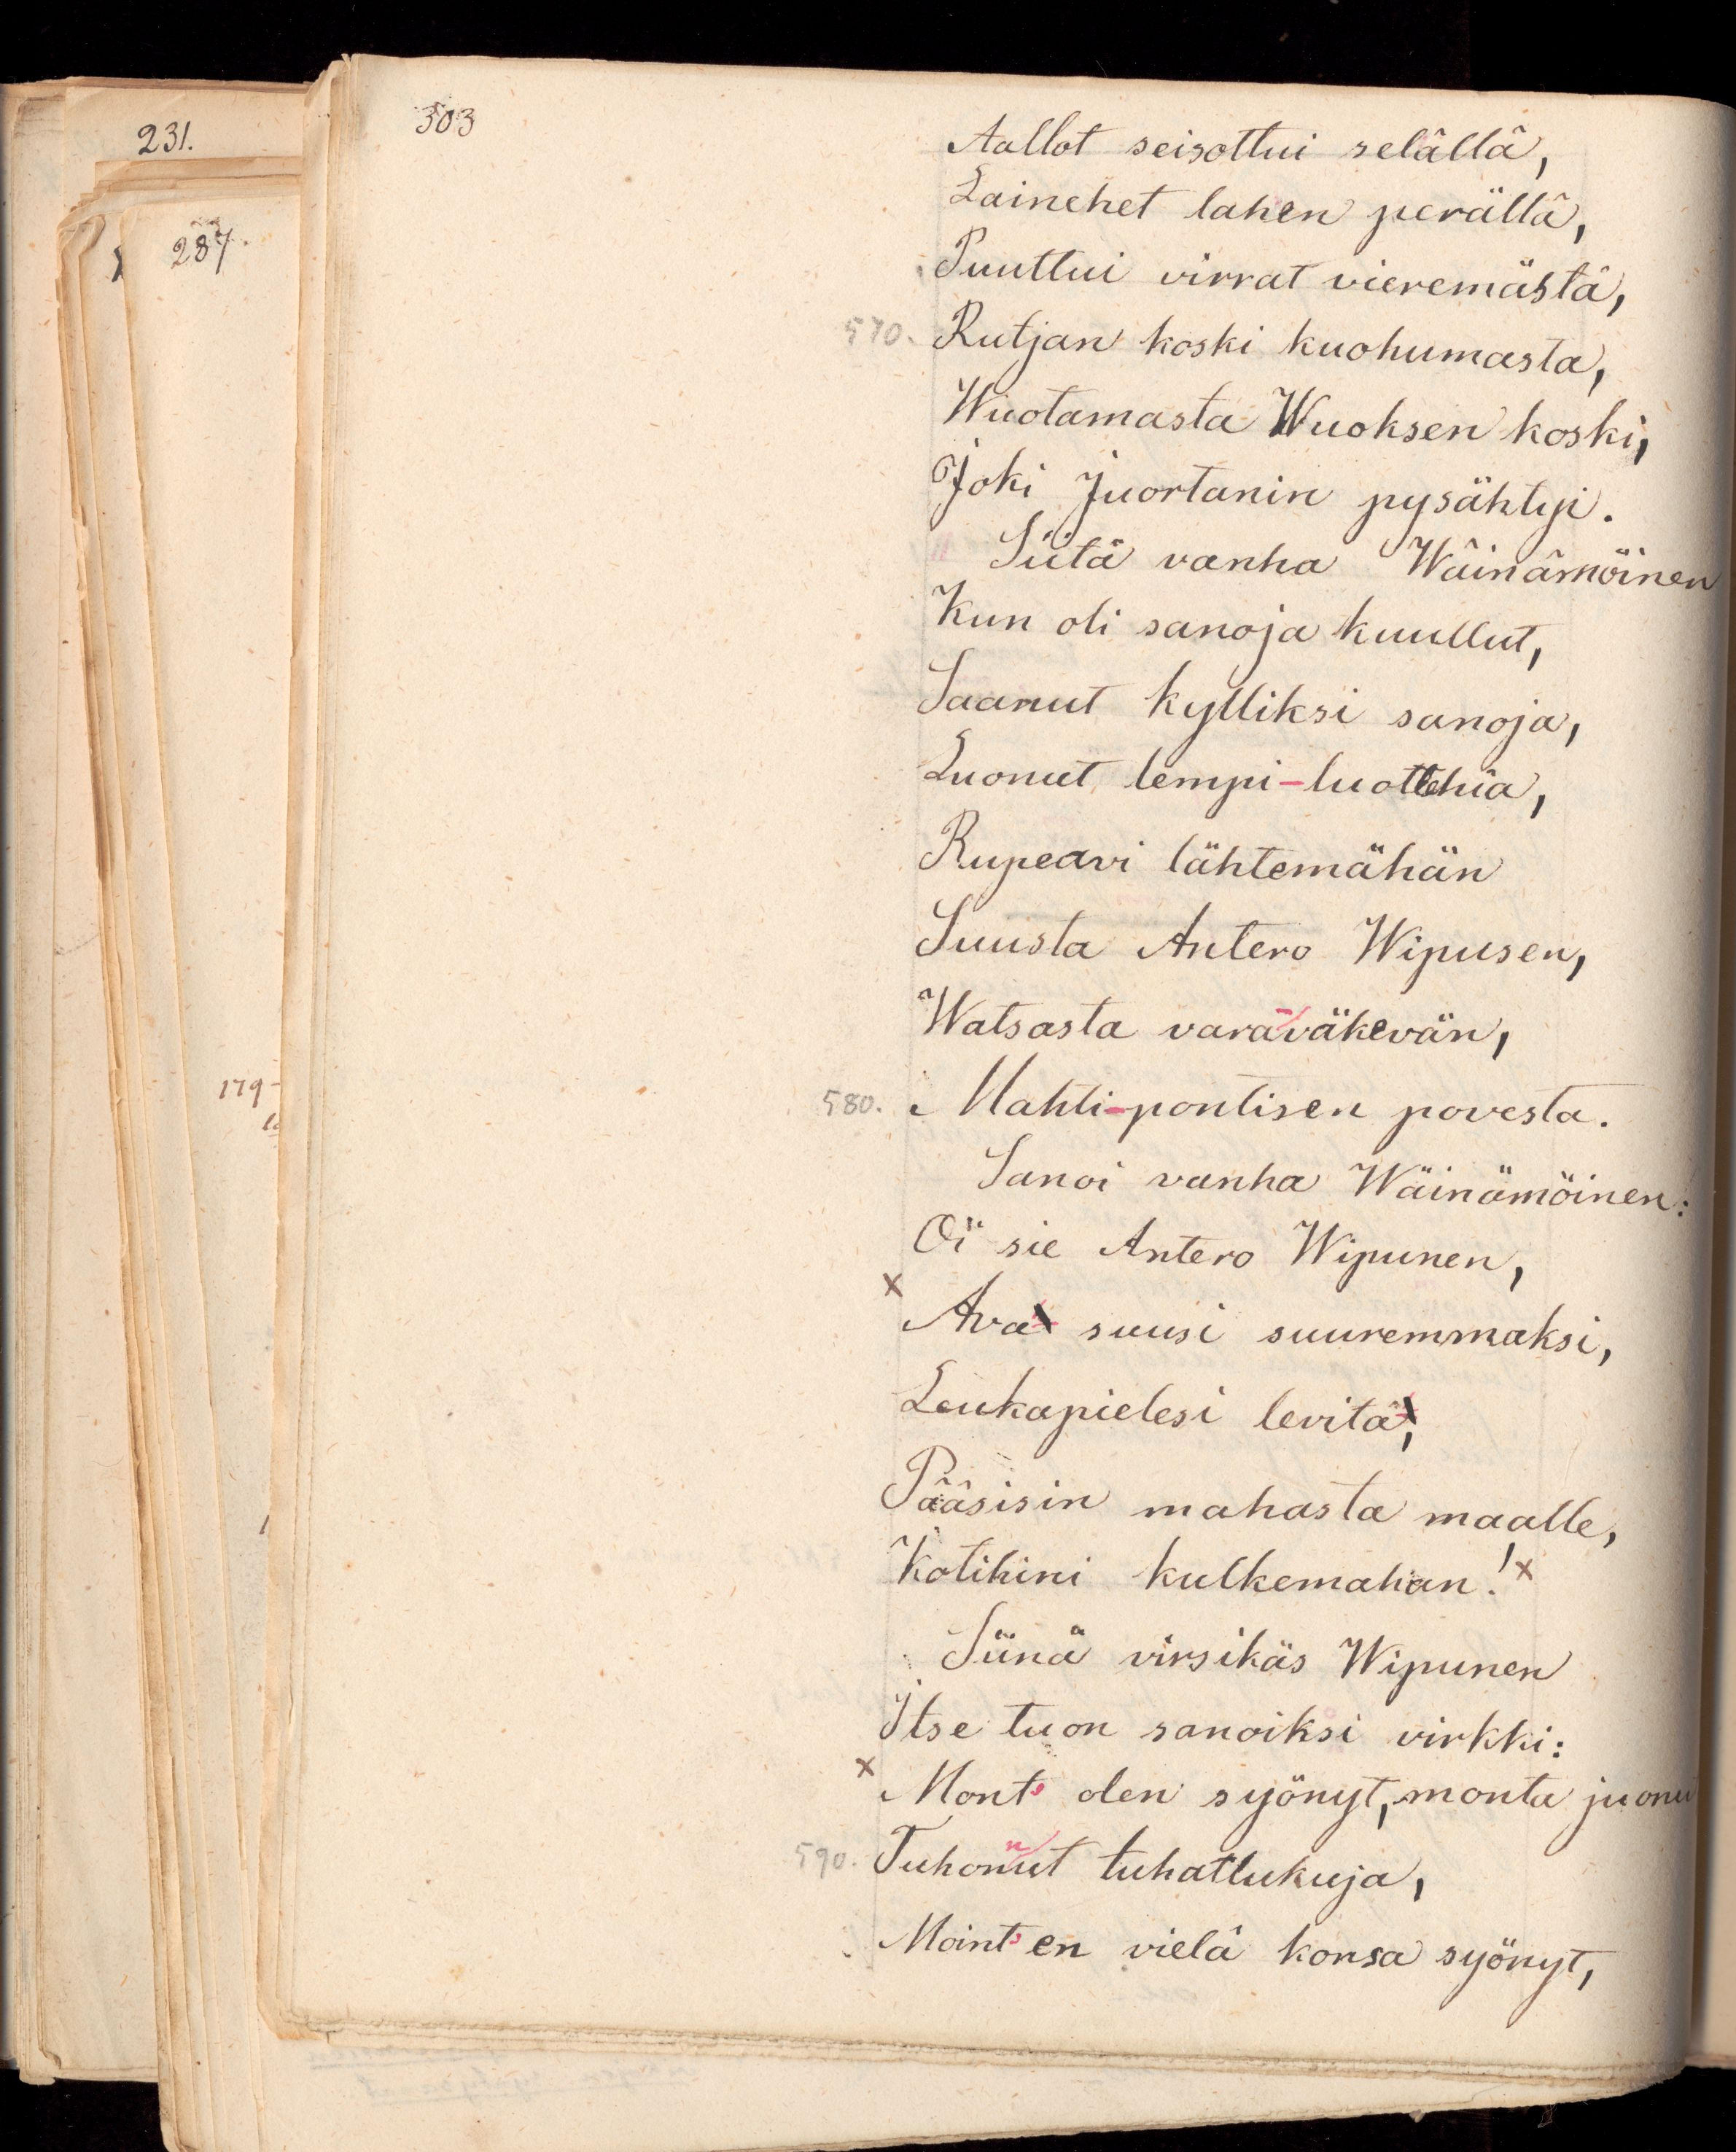 231.
287.
179-
303
Aallot seisottui selällä,
Lainehet lahen perällä,
Puuttui virrat vieremästä,
570. Rutjan koski kuohumasta,
Wuotamasta Wuoksen koski,
Joki Juortanin pysähtyi.
Siitä vanha Wäinämöinen
Kun oli sanoja kuullut,
Saanut kylliksi sanoja,
Luonut lempi-luottehia,
Rupeavi lähtemähän
Suusta Antero Wipusen,
Watsasta vara-väkevän,
580. Mahti-pontisen povesta.
Sanoi vanha Wäinämöinen:
Oi sie Antero Wipunen,
x Ava suusi suuremmaksi,
Leukapielesi levitä,
Pääsisin mahasta maalle,
Kotihini kulkemahan! x
Siinä virsikäs Wipunen
Itse tuon sanoiksi virkki:
x Mont' olen syönyt, monta juonu
590. Tuhonnut tuhatlukuja,
Moint' en vielä konsa syönyt,